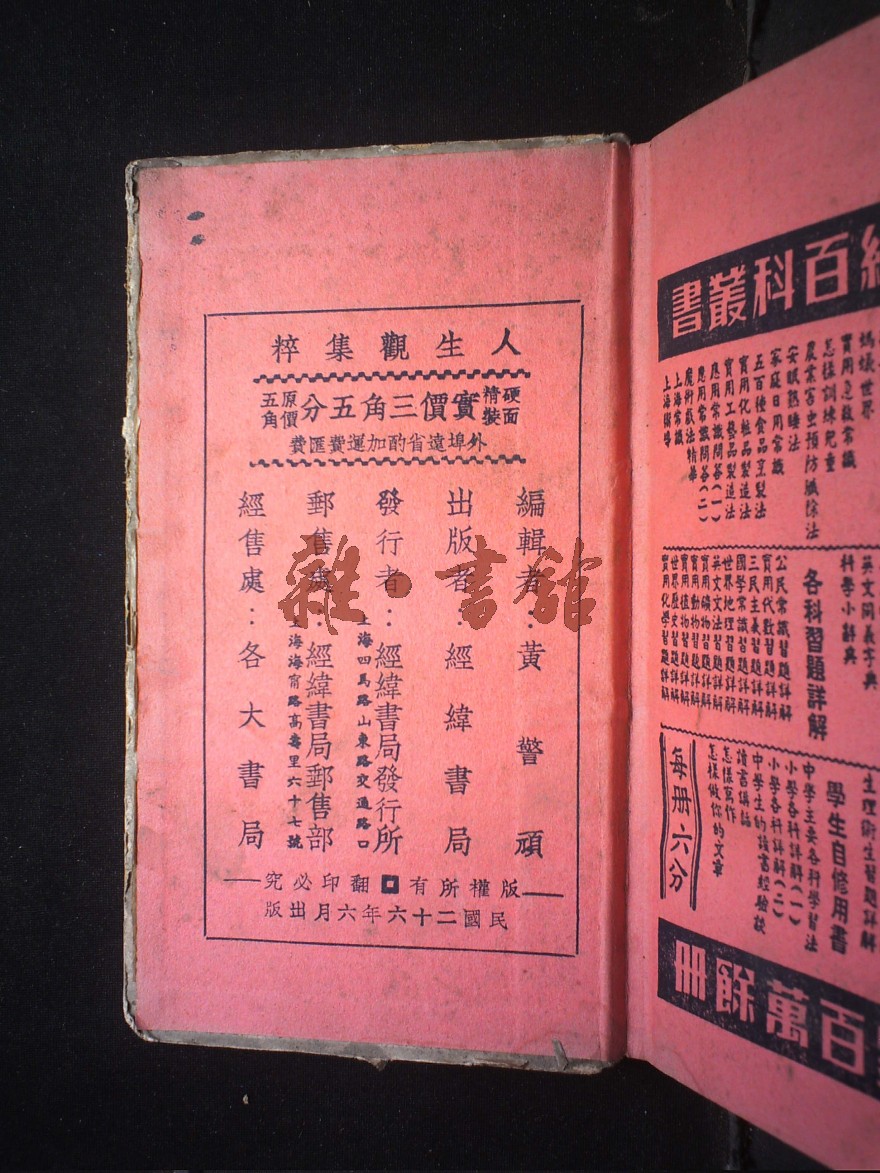 人生觀集粹
硬面
精裝
實價三角五分
原價
五角
外埠遠省酌加運費匯費
編輯者：黃警頑
出版者：經緯書局
發行者：經緯書局發行所
上海四馬路山東路交通路口
郵售處：經緯書局郵售部
上海海甯路高壽里六十七號
經售處：各大書局
版權所有翻印必究
民國二十六年六月出版
雜·書館
百科叢書
螞蟻世界
實用急救常識
怎樣訓練兒童
農業害虫預防滅除法
安眠熟睡法
家庭日用常識
五百種食品烹製法
實用化粧品製造法
實用工藝品製造法
應用常識問答（一）
應用常識問答（二）
魔術戲法精華
上海常識
上海術語
英文同義字典
科學小辭典
各科習題詳解
公民常識習題詳解
實用代數習題詳解
三民主義習題詳解
國學常識習題詳解
世界地理習題詳解
英文文法習題詳解
實用礦物習題詳解
實用動物習題詳解
實用植物習題詳解
世界歷史習題詳解
實用化學習題詳解
生理衛生習題詳解
學生自修用書
中學主要各科學習法
小學各科詳解（一）
小學各科詳解（二）
中學生的讀書經驗談
讀書講話
怎樣寫作
怎樣做你的文章
每册六分
百萬餘冊